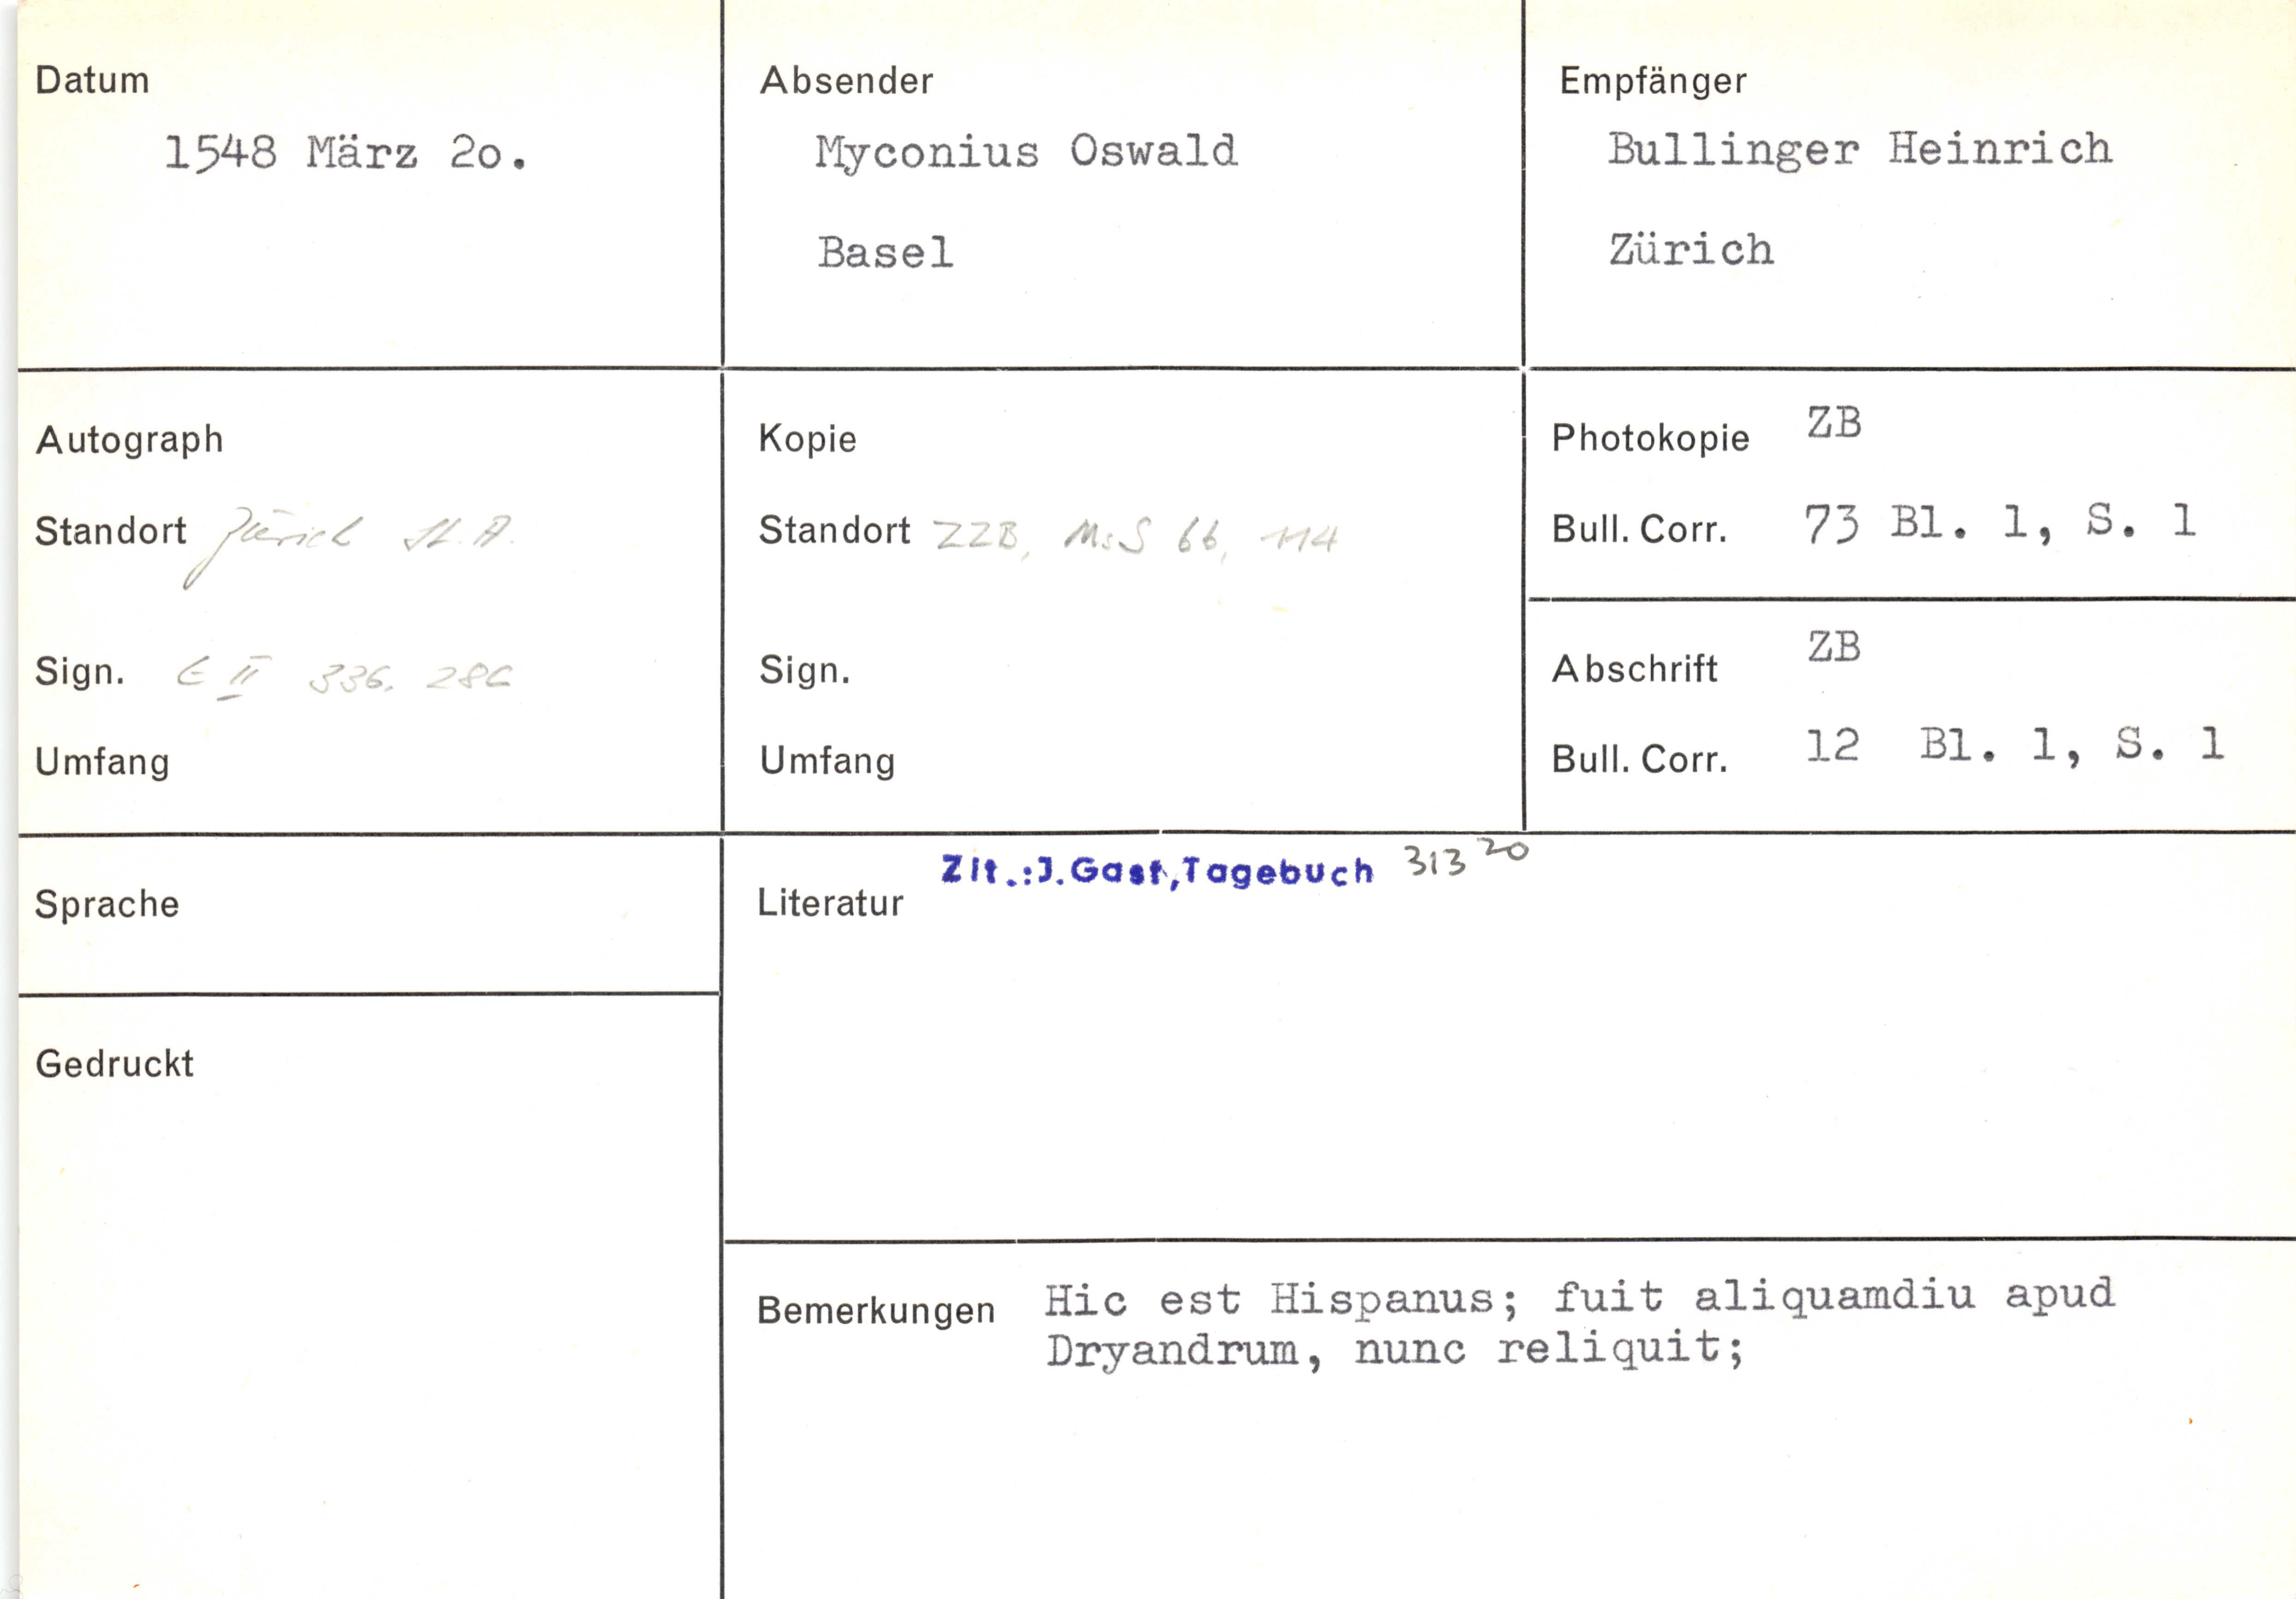 Datum
1548 März 2o.
Absender
Myconius Oswald
Basel
Empfänger
Bullinger Heinrich
Zürich
Autograph
Standort Zürich St. A.
Sign. E II 336. 286
Umfang
Kopie
Standort ZZB, Ms S 66, 114
Sign.
Umfang
Photokopie ZB
Bull. Corr. 73 Bl. 1, S. 1
Abschrift ZB
Bull. Corr. 12 Bl. 1, S. 1
Sprache
Gedruckt
Zit.:J.Gast,Tagebuch 313 20
Literatur
Bemerkungen Hic est Hispanus; fuit aliquamdiu apud
Dryandrum, nunc reliquit;